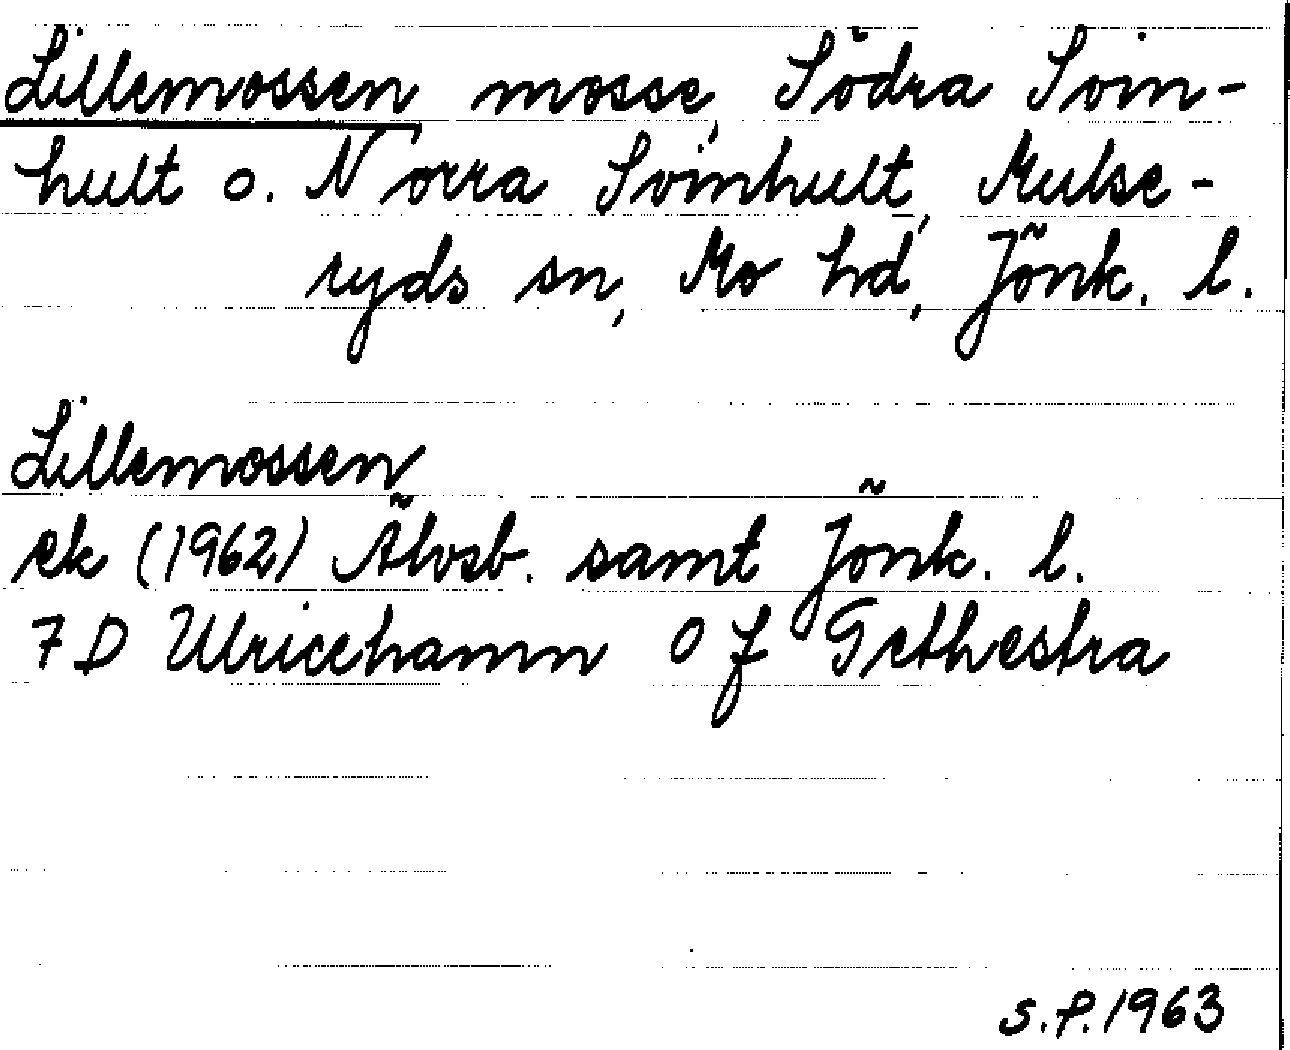 Lillemossen mosse, Södra Svin-
hult o. Norra Svinhult, Mulse-
ryds sn, Mo hd, Jönk. l.
Lillemossen
ek (1962) Älvsb. samt Jönk. l.
7D Ulricehamn 0f Grethestra
S.P. 1963